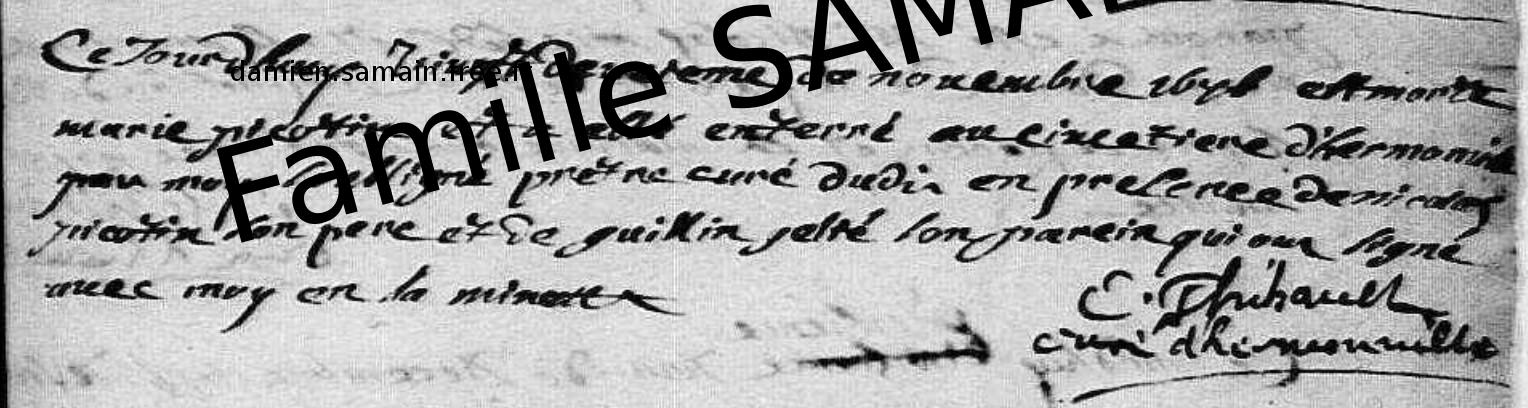 Ce Jourdhuy vingt deuxieme de novembre 16 est morte
marie picotin et a esté enterré au cimetiere dhermonville
par moy soussigné prétre curé dudit en presence de nicolas
picotin son pere et de guillin son parein qui ont signé
avec moy en la minutte
C. Thibault
curé dhermonville
Famille SAMAI
damien.samain.free.fr